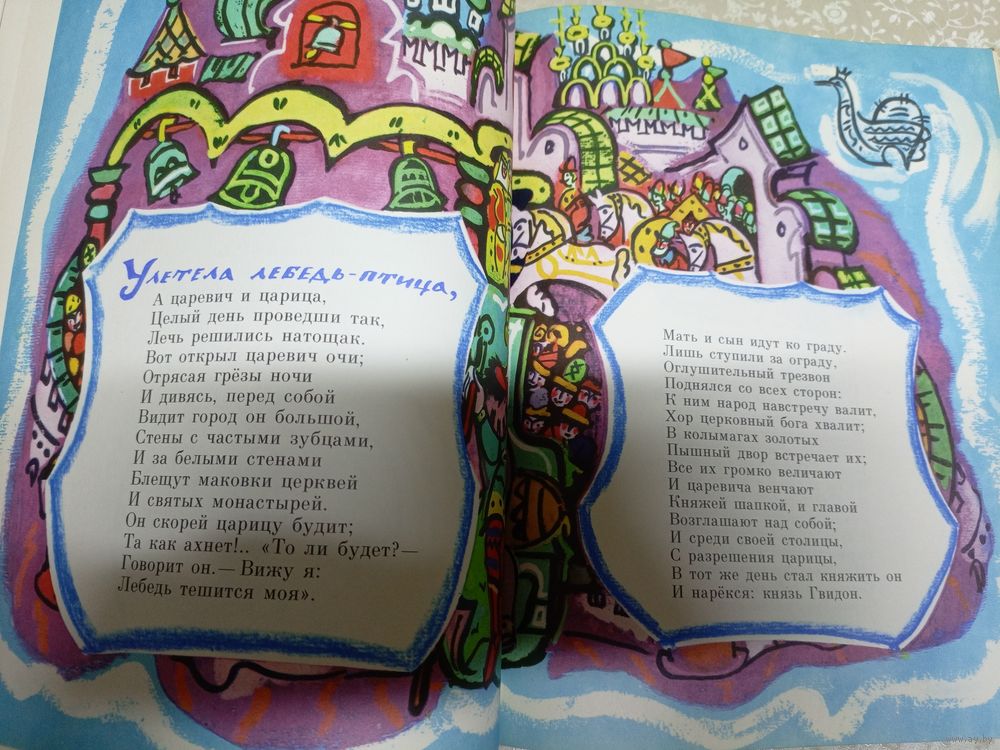 Улетела лебедь-птица,
А царевич и царица,
Целый день проведши так,
Лечь решились натощак.
Вот открыл царевич очи;
Отрясая грёзы ночи
И дивясь, перед собой
Видит город он большой,
Стены с частыми зубцами,
И за белыми стенами
Блещут маковки церквей
И святых монастырей.
Он скорей царицу будит;
Та как ахнет!.. «То ли будет?—
Говорит он.— Вижу я:
Лебедь тешится моя».
Мать и сын идут ко граду.
Лишь ступили за ограду,
Оглушительный трезвон
Поднялся со всех сторон:
К ним народ навстречу валит,
Хор церковный бога хвалит;
В колымагах золотых
Пышный двор встречает их;
Все их громко величают
И царевича венчают
Княжей шапкой, и главой
Возглашают над собой;
И среди своей столицы,
С разрешения царицы,
В тот же день стал княжить он
И нарёкся: князь Гвидон.
www.ay.by